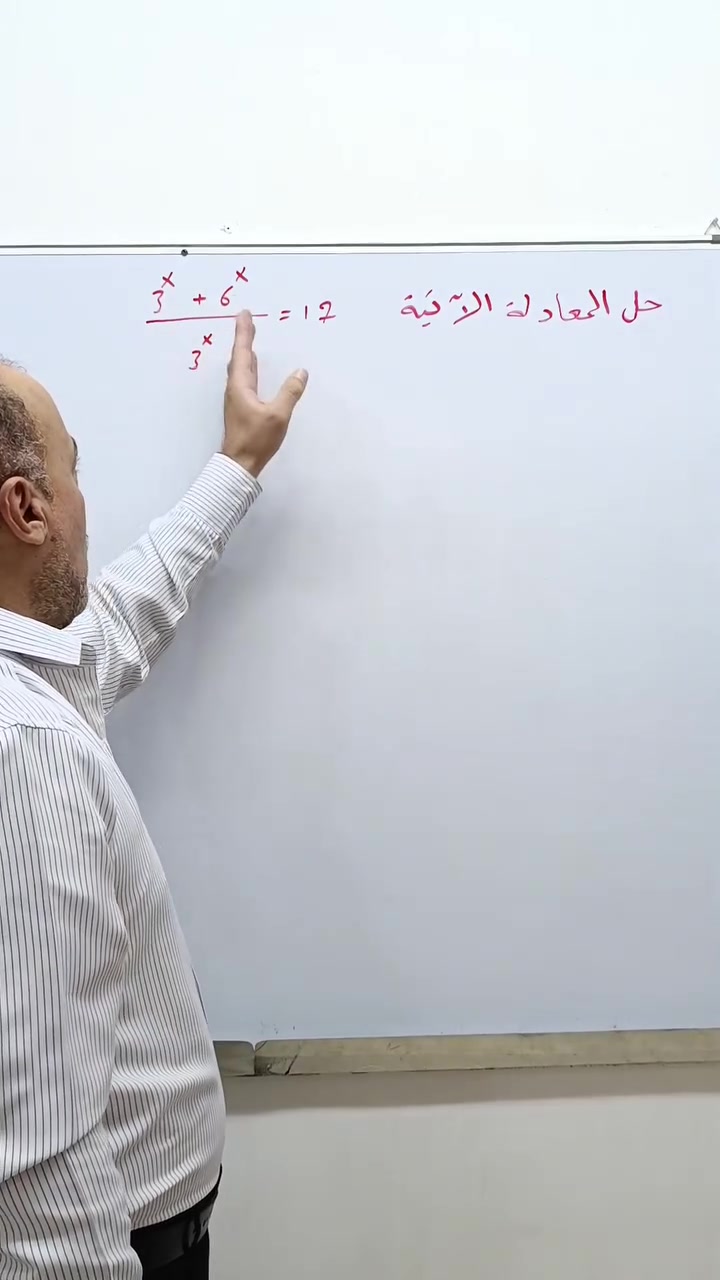 حل المعادلة الآتية
3^x + 6^x / 3^x = 12